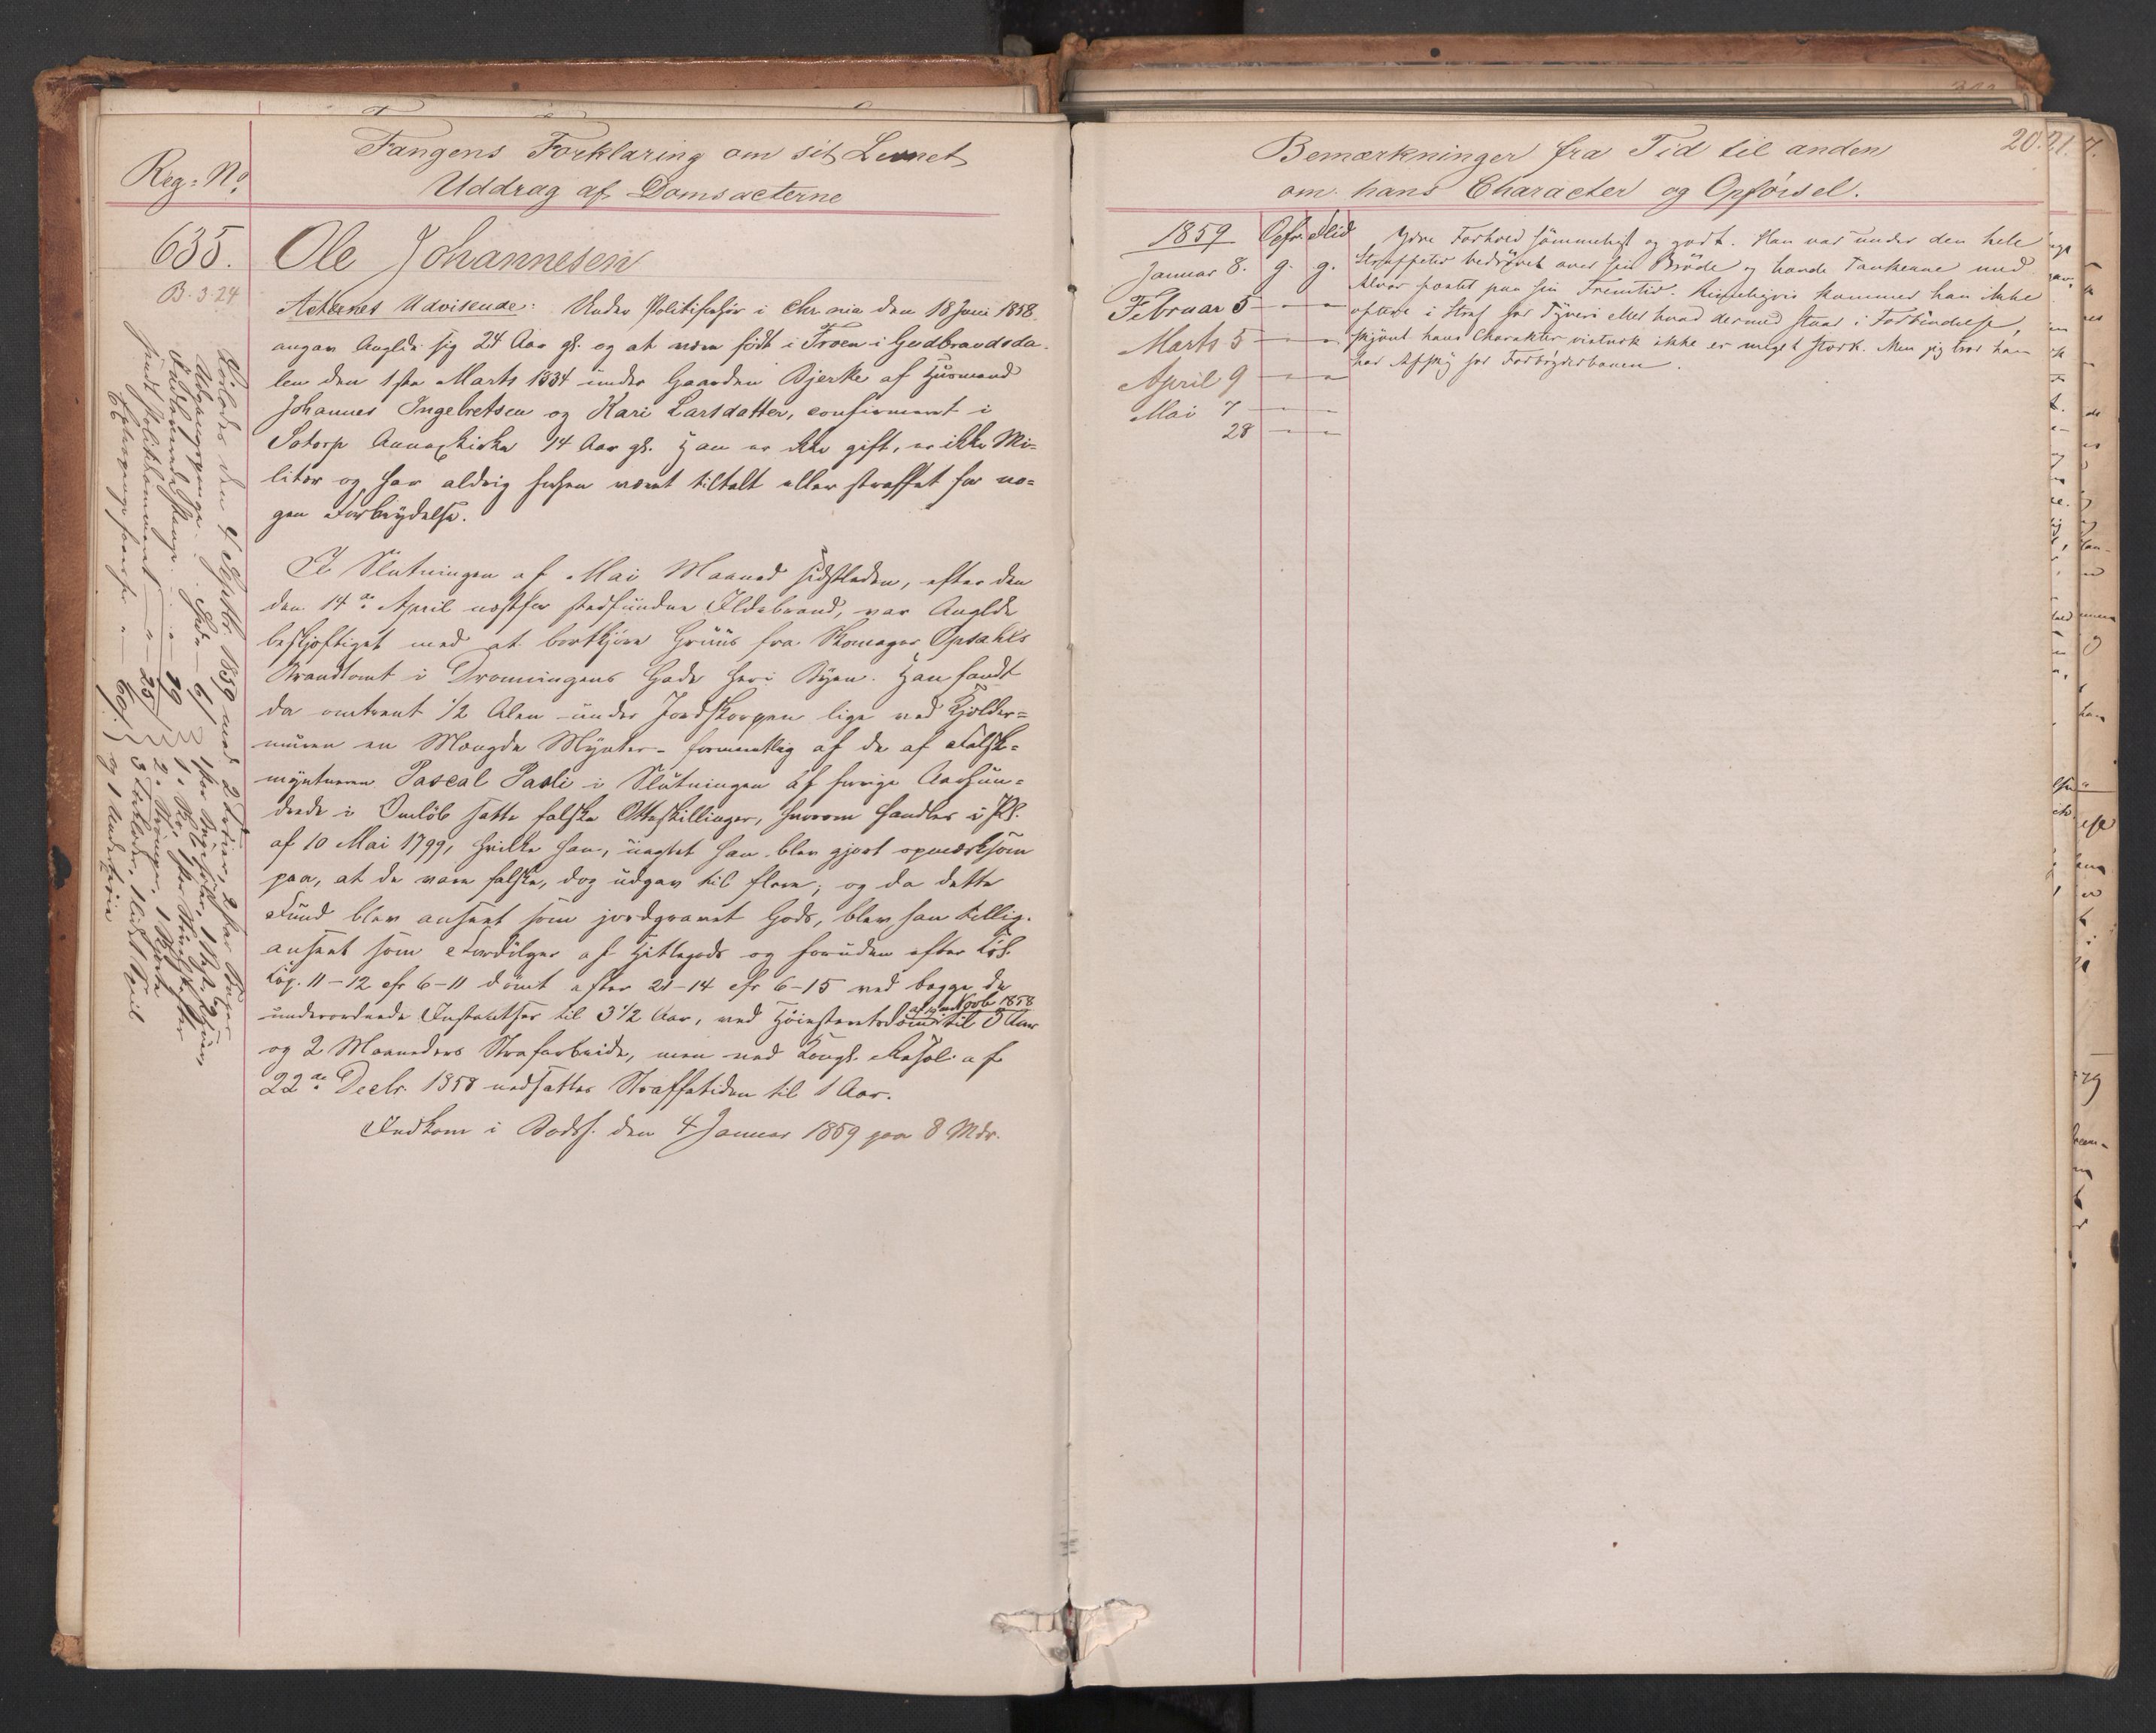 Reg: No.
Fangens Forklaring om sit Levnet
Uddrag af Domsacterne
635.
B. 3.24
Ole Johannesen
Acternes Udvisende: Under Politiforhør i Chr.ania den 18 Juni 1858
angav Anglde sig 24 Aar gl. og at være født i Froen i Gudbrandsda-
len den 1ste Marts 1834 under Gaarden Bjerke af Huusmand
Johannes Ingebretsen og Kari Larsdatter, confirmeret i
Sotorp Annexkirke 14 Aar gl. Han er ikke gift, er ikke Mi-
litær og har aldrig forhen været tiltalt eller straffet for no-
gen Forbrydelse.
I Slutningen af Mai Maaned sidstleden, efter den
den 14de April næstfør stedfundne Ildebrand, var Anglde
beskjæftiget med at bortkjøre Gruus fra Skomager Opsahls
Brandtomt i Dronningens Gade her i Byen. Han fandt
da omtrent 1/2 Alen under Jordskorpen lige ved Kjelder-
muren en Mængde Mynter - formentlig af de af Falsk-
myntneren Pascal Paoli i Slutningen af forrige Aarhun-
drede i Omløb satte falske Otteskillinger, hvorom handles i Pl.
af 10 Mai 1799, hvilke han, uagtet han blev gjort opmærksom
paa, at de vare falske, dog udgav til flere; og da dette
Fund blev anseet som jordgravet Gods, blev han tillig.
anseet som Fordølger af Hittegods og foruden efter
11-12 cfr 6-11 dømt efter 21-14 cfr 6-15 ved begge de
underordnede Instantser til 3 1/2 Aar, ved Høiesteretsdom af Novb 1858 til 3 Aar
og 2 Maaneders Strafarbeide, men ved Kongl. Resol. af
22de Decbr. 1858 nedsattes Straffetiden til 1 Aar.
Indkom i Bodsf. den 4 Januar 1859 paa 8 Mdr.
Løslodes den 4 Septbr. 1859 med 2 Trøier, 2 Par Buxer
Bemærkninger fra Tid til anden
om hans Character og Opførsel.
20.
1859 Opfr. Flid
Januar 8. g. g.
Februar 5 - -
Marts 5 - -
April 9 - -
Mai 7 - -
28 - -
Ydre Forhold sømmeligt og godt. Han var under den hele
Straffetid bedrøvet over sin Brøde og havde Tankerne med
Alvor fæstet paa sin Fremtid. Rimeligvis kommer han ikke
oftere i Straf for Tyveri eller hvad dermed staar i Forbindelse,
skjønt hans Charakter vistnok ikke er meget stærk. Men jeg tror han
har Afsky for Forbryderbanen.